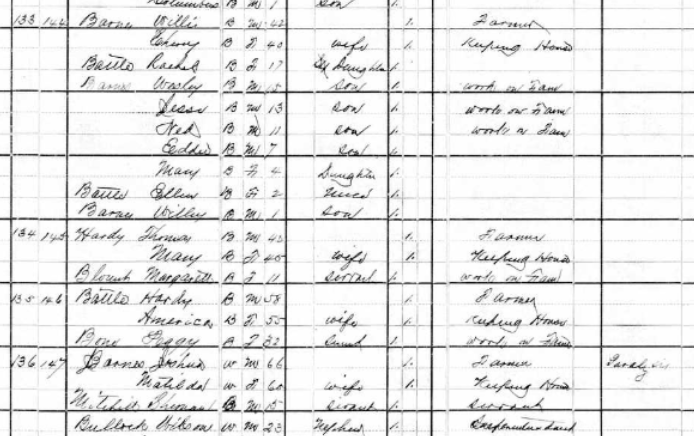 Columbus B M 1 son
133 144 Barnes Willis B M 42 1. Farmer
Cherry B F 40 wife 1. Keeping House
Battle Rachel B F 17 Daughter 1.
Barnes Wesley B M 15 son 1. works on Farm
Jesse B M 13 son 1. works on Farm
Ned B M 11 son 1. works on Farm
Eddie B M 7 son 1.
Mary B F 4 Daughter 1.
Battle Ellen B F 2 Niece 1.
Barnes Willey B M 1 son 1.
134 145 Hardy Thomas B M 45 1. Farmer
Mary B F 45 wife 1. Keeping House
Blount Margarett B F 11 servant 1. works on Farm
135 146 Battle Hardy B M 58 1. Farmer
America B F 55 wife 1. Keeping House
Bone Peggy B F 32 1. works on Farm
136 147 Barnes Joshua W M 66 1. Farmer
Matilda W F 60 wife 1. Keeping House
Mitchell B M 15 servant 1. servant
Bullock Wilson W M 23 Nephew 1.